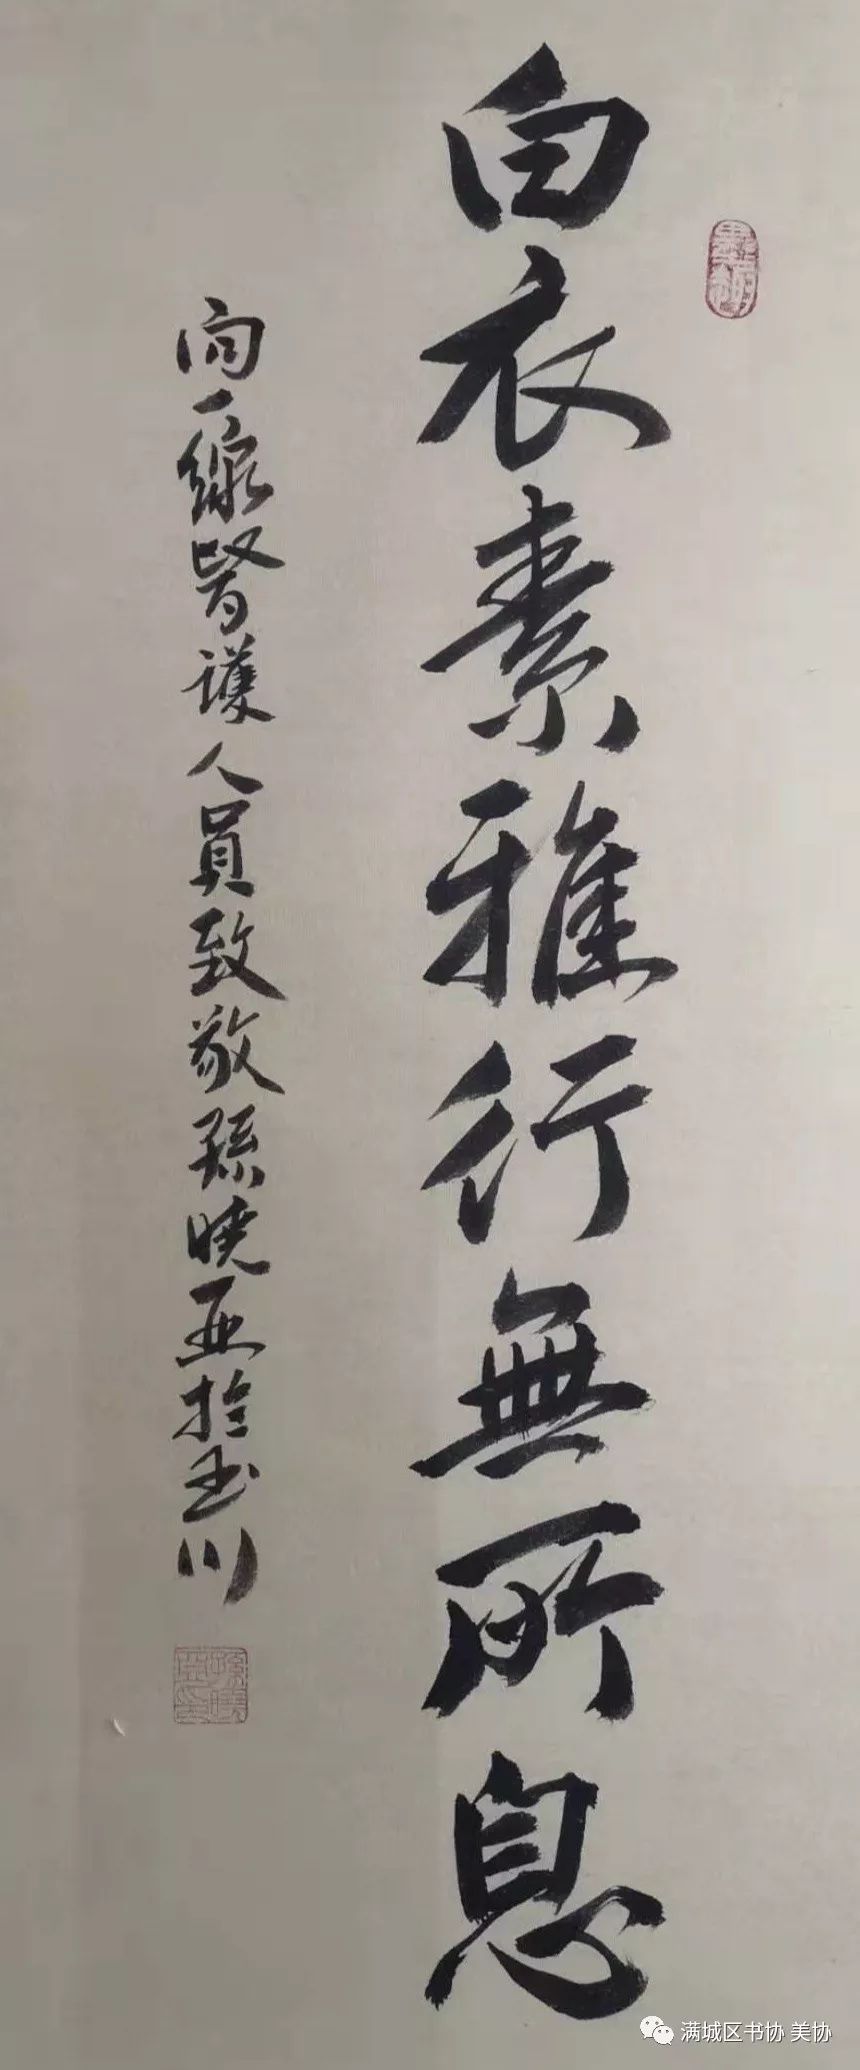 白衣素雅行無所息
向一線醫護人員致敬孫曉亚於玉川
满城区书协 美协